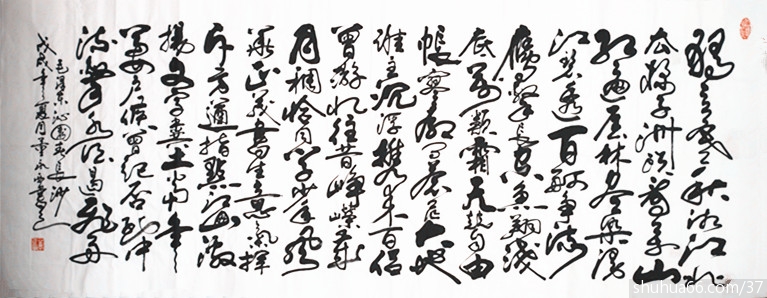 獨立寒秋湘江北
去橘子洲頭看萬山
紅遍層林盡染漫
江碧透百舸爭流
鷹擊長空魚翔淺
底萬類霜天競自由
悵寥廓問蒼茫大地
誰主沉浮攜來百侶
曾游憶往昔崢嶸歲
月稠恰同學少年風
華正茂書生意氣揮
斥方遒指點江山激
揚文字糞土當年
萬戶侯曾記否到中
流擊水浪遏飛舟
毛澤東沁園春長沙
戊戌年夏月
shuhua66.com/37